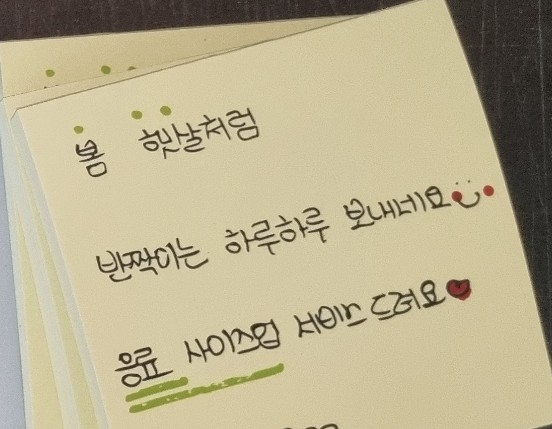 봄 햇날처럼
반짝이는 하루하루 보내네요
음료 사이즈업 서비스 드려요